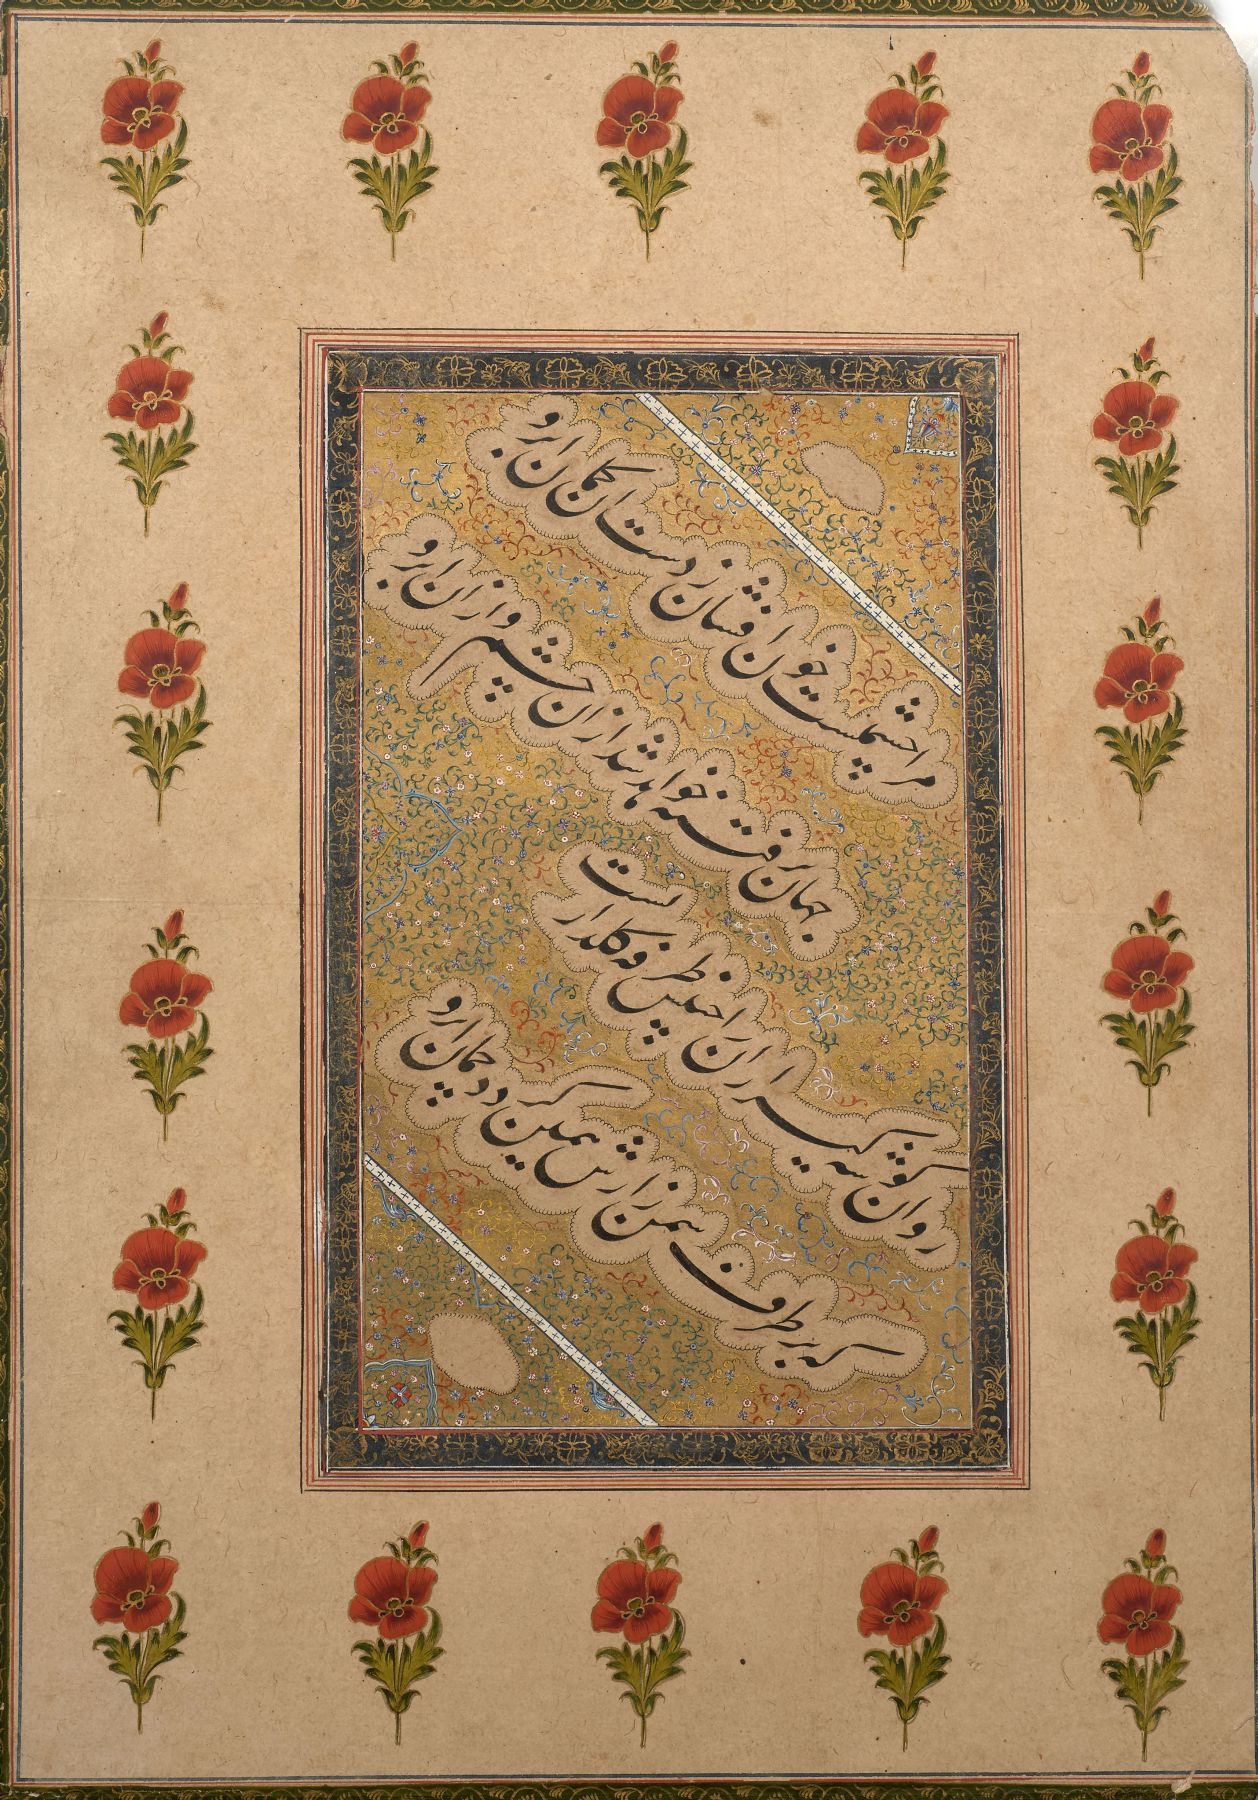 مرا چشمیست خون افشان ز دست ان کمان ابرو
جهان پر فتنه خواهد شد ازان چشم و ازان ابرو
روان کوشه کیران را جبینش طرفه کلزاریست
که بر طرف سمن زارش همیکردد چمان ابرو